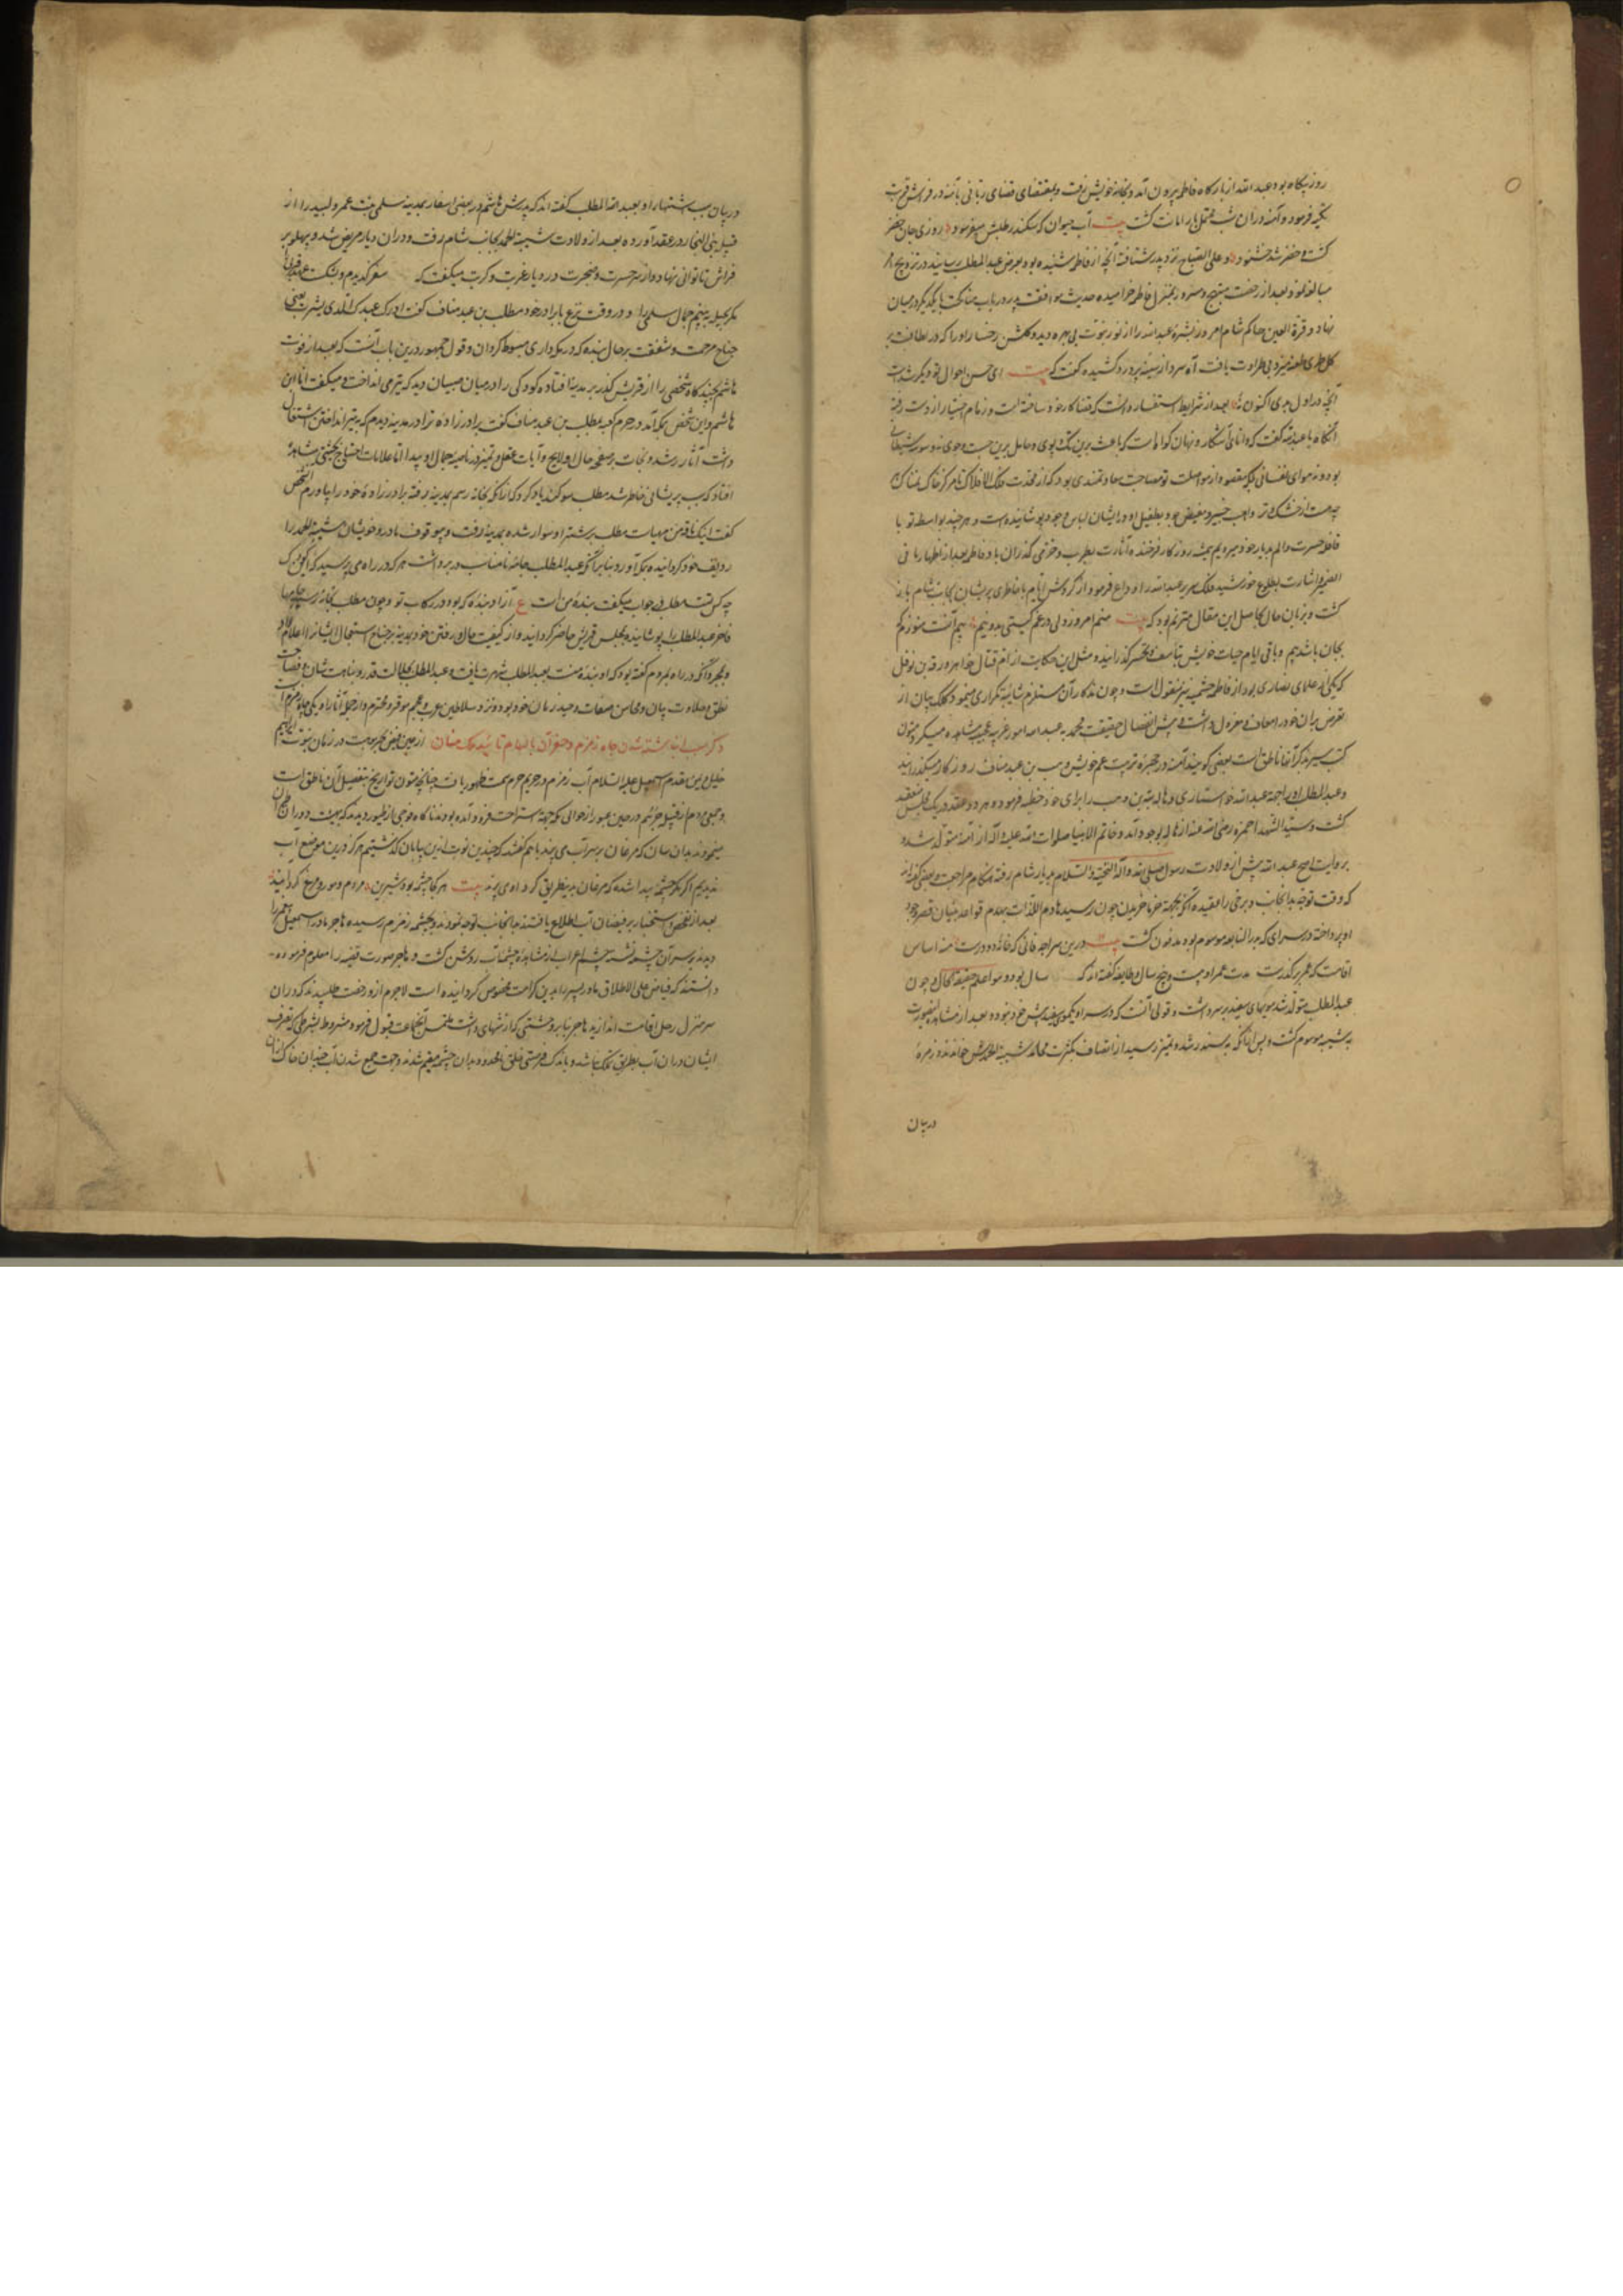 روز پکاه بود عبد الله از بارکاه فاطمه پرون آمد و بخانه خویش رفت و بمقتضای قضای ربانی با آمنه در فراش قربت
تکیه فرمود و آمنه در آن شب محمل بار امانت کشت بیت آب حیوان که سکندر طلبش میفرمود روزی جان خضر
کشت و خضر شد خشنود و علی الصباح نزد پدر شتافته آنچه از فاطمه شنیده بود بعرض عبد المطلب رسانید و در تزویج او
مبالغه نمود و بعد از رخصت بمنزل فاطمه خرامیده حدیث موافقت پدر در باب مناکحت با یکدیکر در میان
نهاد و قرة العین حاکم شام امروز بشره عبد الله را از نور نبوت بی بهره دید و کلشن رخسار او را که در لطافت بر
کل طری طعنه میزد بی طراوت یافت آه سرد از سینه پر درد کشیده کفت که بیت ای حسن احوال تو دیکر شده است
آنچه در اول بدی اکنون نه بعد از شرایط استفسار دانست که قضا کار خود ساخته است و زمام اختیار از دست رفته
آنکاه با عبد الله کفت که دانای آشکار و نهان کواه است که باعث برین تک و پوی و حامل برین جست و جوی نه وسوسه شیطانی
بود و نه هوای نفسانی بلکه مقصود از مواصلت تو مصاحبت سعادتمندی بود که از محدب فلک الافلاک تا مرکز خاک نمناک
هر چه هست از خشک و تر واهب خیر و مفیض جود بطفیل او در ایشان لباس وجود پوشانیده است و هر چند بواسطه تو با
قافله حسرت و الم بدیار خود میرویم همیشه روزکار فرخنده آثارت بطرب و خرمی کذران باد و فاطمه بعد از اظهار ما فی
الضمیر اشارت بطلوع خورشید فلک سریر عبد الله را وداع فرمود و از کردش ایام با خاطری پریشان بجانب شام باز
کشت و بزبان حال بحاصل این مقال مترنم بود که بیت منم امروز و دلی در غم کیتی بدو نیم بیم آنست هنوز کم
بجان باشد بیم و باقی ایام حیات خویش بتاسف و تحسر کذرانید و مثل این حکایت از ام قتال خواهر ورقة بن نوفل
که یکی از علمای نصاری بود و از فاطمه خثعمیه نیز منقول است و چون تذکار آن مستلزم شائبه تکراری مینمود کلک بیان از
تعرض بدان خود را معاف و معزول داشت و پیش از انفصال حقیقت محمدیه عبد الله امور غریبه عجیبه مشاهده میکرد و متون
کتب سیر بذکر آنها ناطق است بعضی کویند آمنه در حجره تربیت عم خویش وهیب بن عبد مناف روزکار میکذرانید
و عبد المطلب او را جهة عبد الله خواستاری و هاله بنت وهیب را برای خود خطبه فرمود و هر دو عقد در یک مجلس منعقد
کشت و سید الشهدا حمزه رضی الله عنه از هاله بوجود آمد و خاتم الانبیا صلوات الله علیه و آله از آمنه متولد شد و
بروایت اصح عبد الله پیش از ولادت رسول صلی الله و آله التحیة و السلام بدیار شام رفته هنکام مراجعت و بعضی کفته‌اند
که وقت توجه بدانجانب و برخی را عقیده آنکه بجهة خرما خریدن چون رسید هادم اللذات بهدم قواعد بنیان قصر وجود
او پرداخته در سرای که بدار النابغه موسوم بود مدفون کشت بیت درین سراچه فانی که خانه دو در است منه اساس
اقامت که عمر برکذر است مدت عمر او بیست و پنج سال و طایفه کفته‌اند که سال بود و هو اعلم بحقیقة الحال و چون
عبد المطلب متولد شد مویهای سفید بر سر داشت و قولی آنست که در سر او یک موی سفید پیش نبوده بعد از مشاهده اینصورت
به شیبه موسوم کشت و پس از آنکه بسن رشد و تمیز رسید از اتصاف بکثرت محامد شیبة الحمدش خواندند و زمره
در بیان
در بیان سبب اشتهار او بعبد المطلب کفته‌اند که پدرش هاشم در بعضی اسفار بمدینه سلمی بنت عمرو لبید را از
قبیله بنی النجار در عقد آورده بعد از ولادت شیبة الحمد بجانب شام رفت و در آن دیار مریض شد و پهلو بر
فراش ناتوانی نهاد و از سر حسرت و ضجرت در دیار غربت و کربت میکفت که سفر کزیدم و بشکست عهد قربی
مکر بحیله ببینم جمال سلمی را و در وقت نزع با برادر خود مطلب بن عبد مناف کفت ادرک عبدک الذی بیثرب یعنی
جناح مرحمت و شفقت بر حال بنده که در یثرب داری مبسوط کردان و قول جمهور درین باب آنست که بعد از فوت
هاشم بچند کاه شخصی را از قریش کذر بر مدینه افتاده کودکی را در میان صبیان دید که تیر می انداخت و میکفت انا ابن
هاشم و این شخص بمکه آمد در حرم کعبه مطلب بن عبد مناف کفت برادرزاده ترا در مدینه دیدم که به تیر انداختن اشتغال
داشت آثار رشد و نجابت بر صفحه حال او لایح و آیات عقل و تمیز در ناصیه جمال او پیدا اما علامات احتیاج بحیثیتی مشاهده
افتاد که سبب پریشانی خاطر شد مطلب سوکند یاد کرد که از آنکه بخانه رسم بمدینه رفته برادرزاده خود را بیاورم آن شخص
کفت اینک ناقه من مهیاست مطلب بر شتر او سوار شده بمدینه رفت و بی وقوف مادر و خویشان شیبة الحمد را
ردیف خود کردانیده بمکه آورد و بنا بر آنکه عبد المطلب جامه نامناسب در بر داشت هر که در راه می پرسید که این کودک
چه کس تست مطلب در جواب میکفت بنده من است ع آزاد بنده که بود در رکاب تو و چون مطلب بخانه رسید جامهای
فاخر عبد المطلب را پوشانیده بمجلس قریش حاضر کردانید و از کیفیت حال و رفتن خود بمدینه بر جناح استعجال ایشانرا اعلام داد
و بمجرد آنکه در راه بمردم کفته بود که او بنده منست بعبد المطلب شهرت یافت و عبد المطلب بجلالت قدر و نباهت شان و فصاحت
نطق و حلاوت بیان و محاسن صفات وحید زمان خود بود و نزد سلاطین عرب و عجم موقر و محترم و از جمله آثار او یکی چاه زمزم است
ذکر سبب انباشته شدن چاه زمزم و حفر آن بالهام تائید ملک منان از عین فیض بحر موهبت در زمان نبوت ابراهیم
خلیل و یمن مقدم اسمعیل علیه السلام آب زمزم در حریم حرم سمت ظهور یافت چنانچه متون تواریخ بتفصیل آن ناطق است
و جمعی مردم از قبیله جرهم در حین عبور از حوالی مکه جهة استراحت فرود آمده بودند ناکاه فوجی از طیور دیدند که بهیئت دوران طیران
مینمودند بدان سان که مرغان بر سر آب می پرند با هم کفتند که چندین نوبت ازین بیابان کذشتیم هرکز درین موضع آب
ندیدیم اکر نه مکر چشمه پیدا شده که مرغان بدینطریق کرد او می پرند بیت هر کجا چشمه بود شیرین مردم و مور و مرغ کرد آیند
بعد از تفحص و استخبار بر فیضان آب اطلاع یافتند بدانجانب توجه نمودند و بچشمه زمزم رسیده هاجر مادر اسمعیل علیهم را
دیدند بر سر آن چشمه نشسته چشم اعراب از مشاهده چشمه آب روشن کشت و هاجر صورت قضیه را معلوم فرموده
دانستند که فیاض علی الاطلاق مادر و پسر را بدین کرامت مخصوص کردانیده است لاجرم ازو رخصت طلبیدند که در آن
سرمنزل رحل اقامت اندازند هاجر بنا بر وحشتی که از تنهایی داشت ملتمس آن جماعت قبول فرمود مشروط بشرطی که تصرف
ایشان در آن آب بطریق تملک نباشد و باندک فرصتی خلقی نامحدود بدان چشمه مقیم شدند و جهت جمع شدن آب چندان خاک از آن